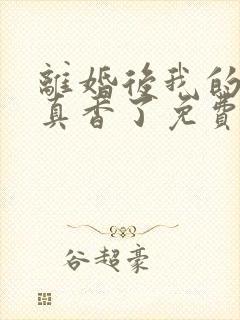 離婚後我的
真香了免費
谷超豪